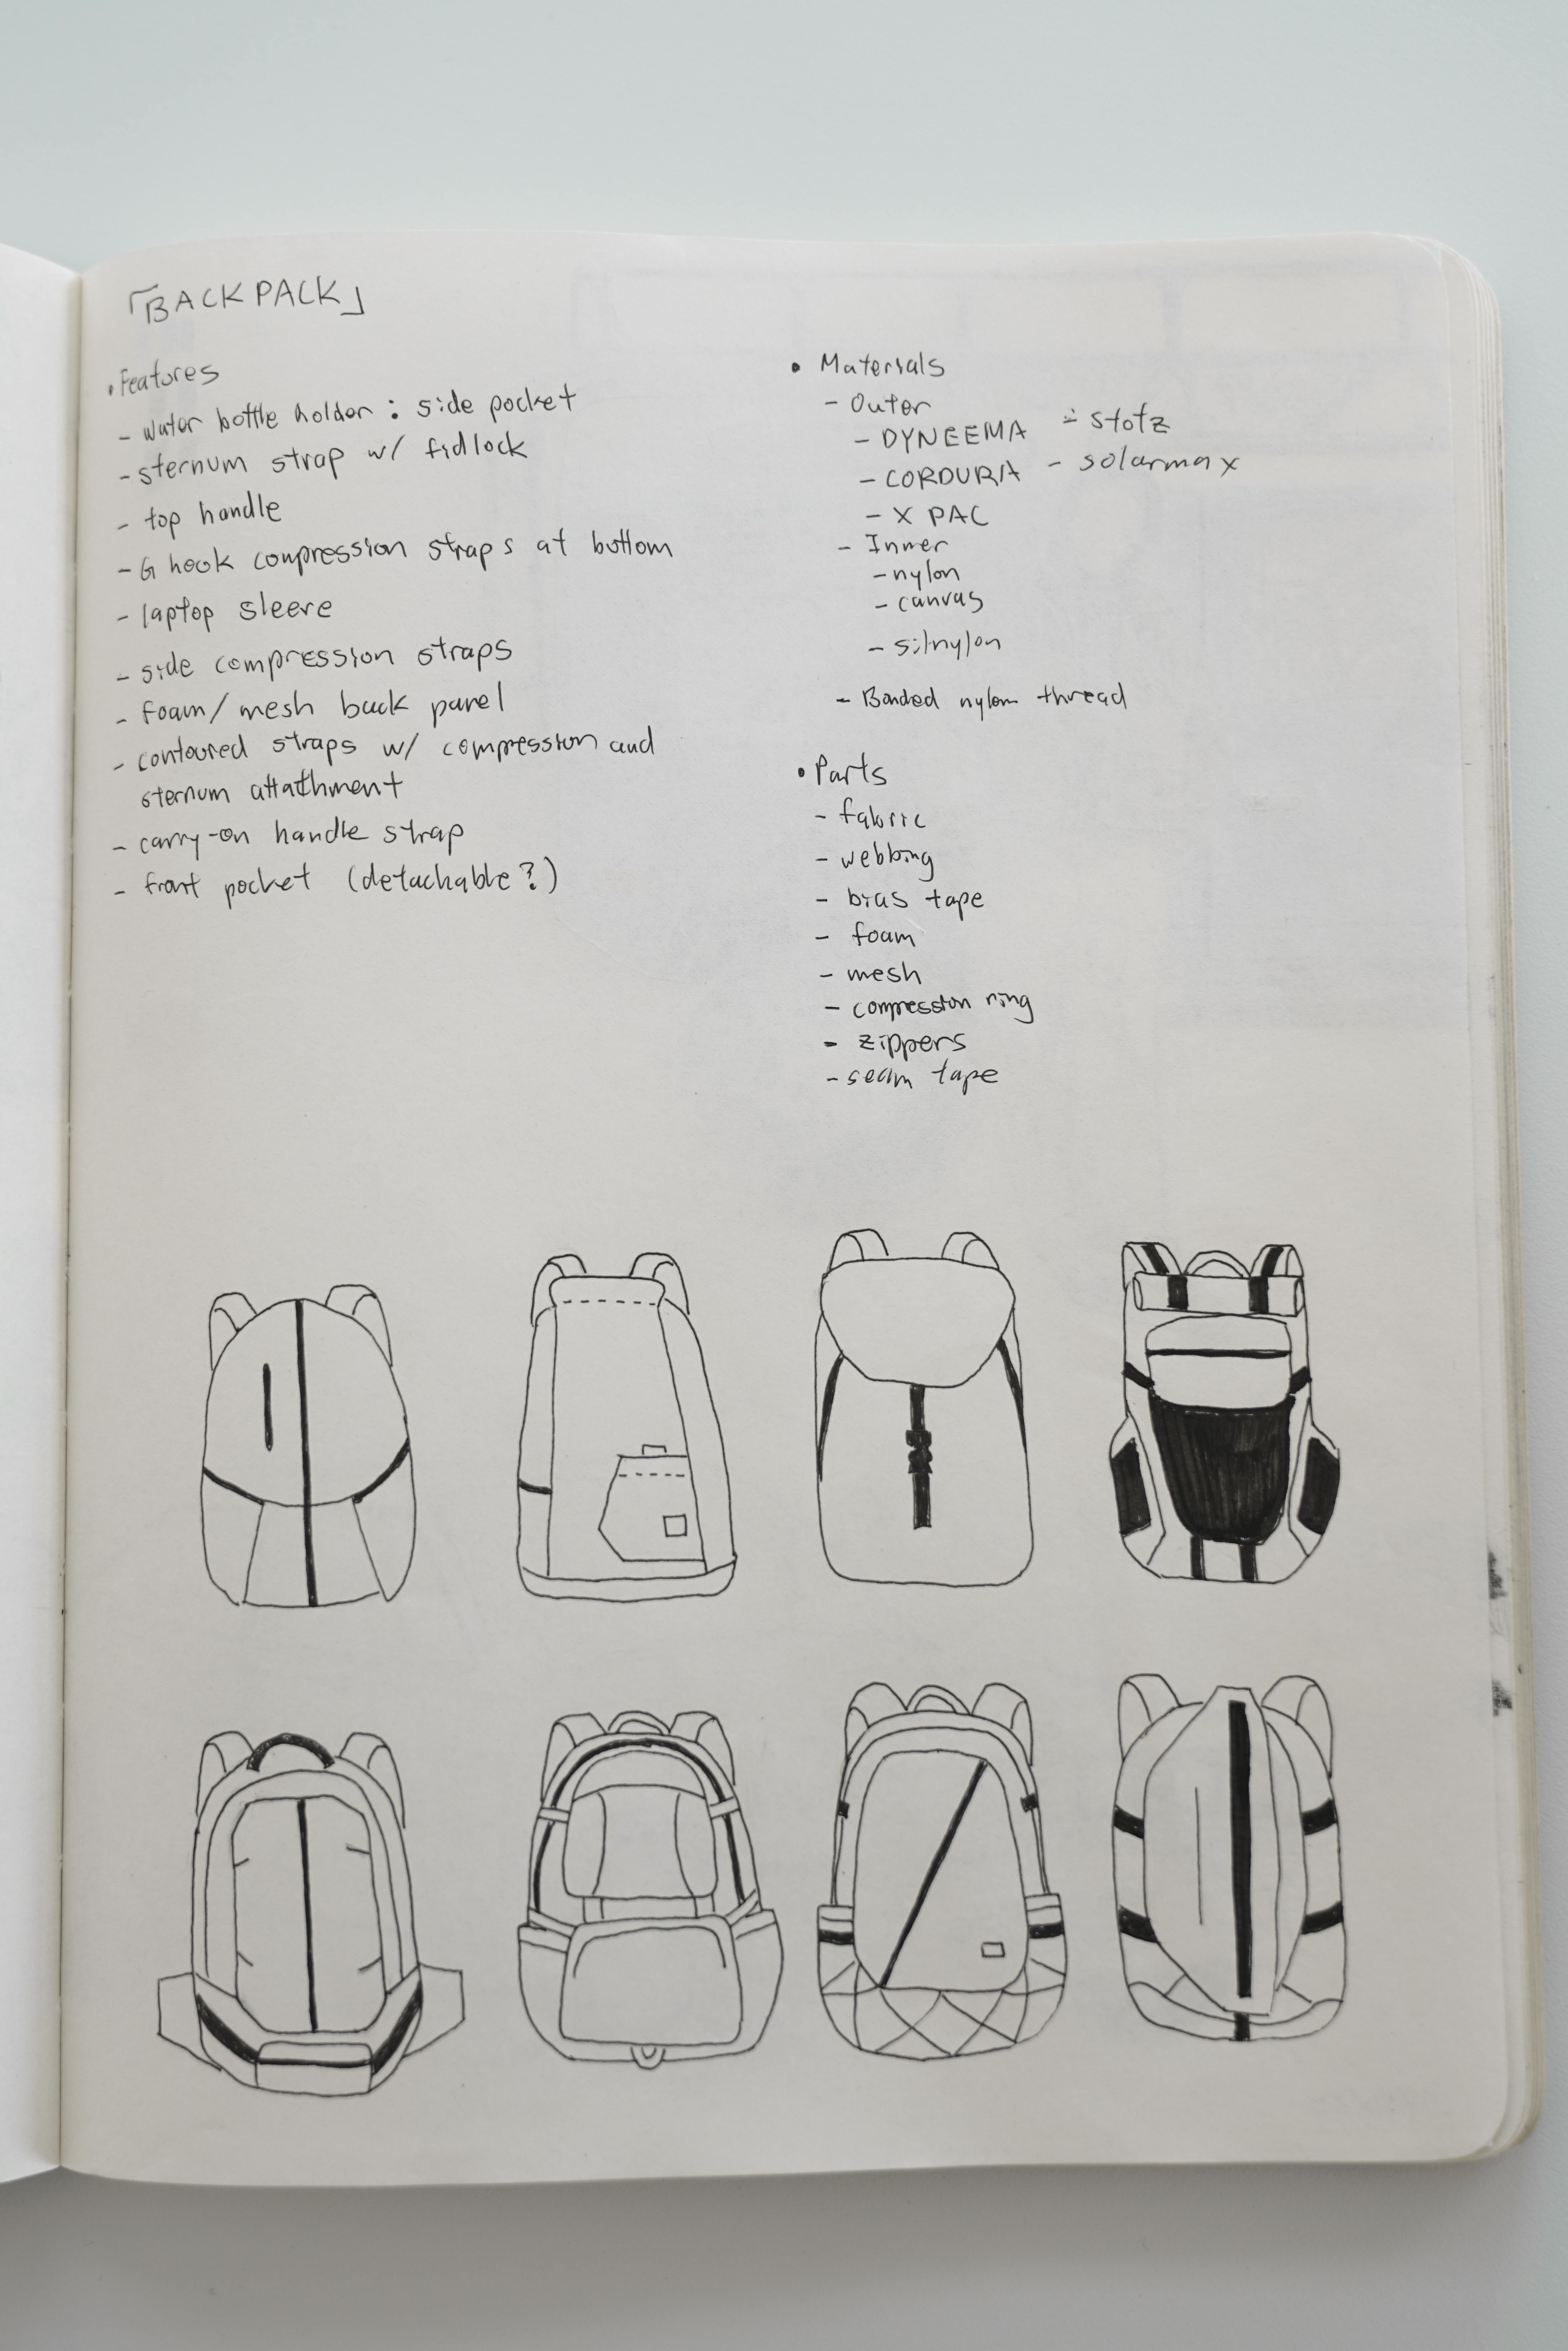 「BACKPACK」
• Features
- water bottle holder : side pocket
- sternum strap w/ fidlock
- top handle
- G hook compression straps at bottom
- laptop sleeve
- side compression straps
- foam/mesh back panel
- contoured straps w/ compression and
sternum attatchment
- carry-on handle strap
- front pocket (detachable?)
• Materials
- Outer
- DYNEEMA - stotz
- CORDURA - solarmax
- X PAC
- Inner
- nylon
- canvas
- silnylon
- Bonded nylon thread
• Parts
- fabric
- webbing
- bias tape
- foam
- mesh
- compression ring
- zippers
- seam tape